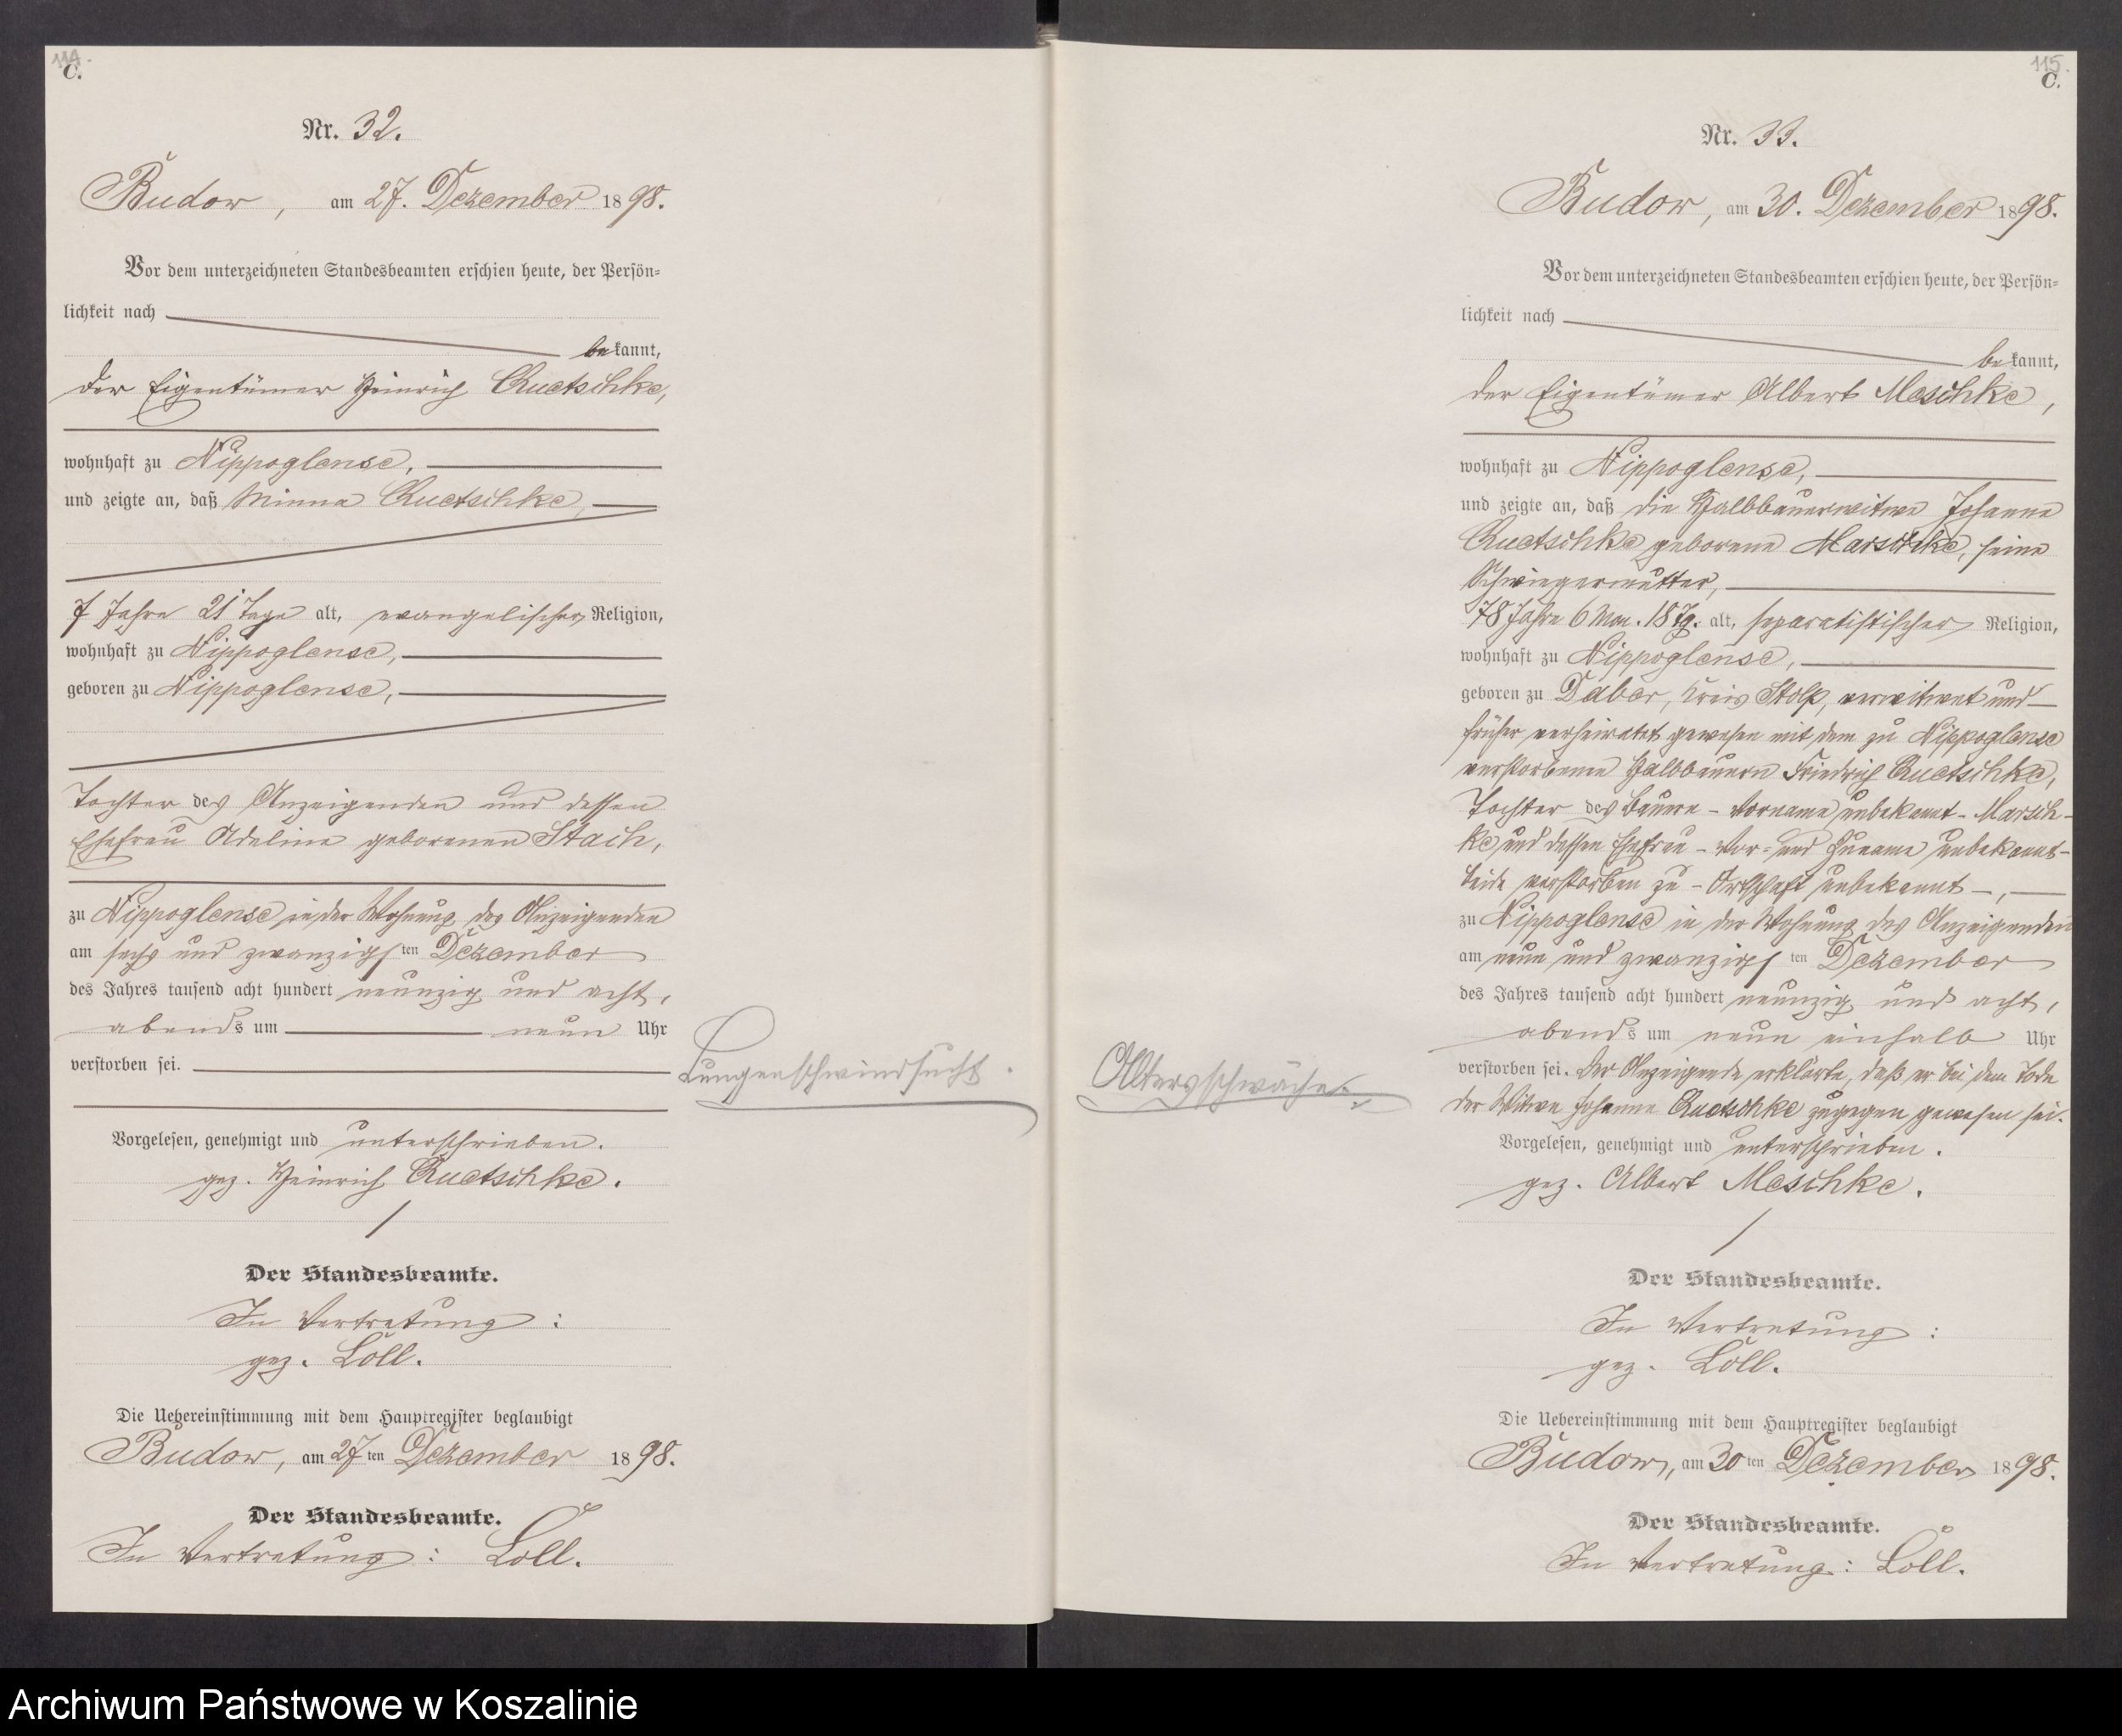 114.
C.
Nr. 32.
Budow, am 27. Dezember 1898.
Vor dem unterzeichneten Standesbeamten erschien heute, der Persön-
lichkeit nach
bekannt,
der Eigentümer Heinrich Quetschke,
wohnhaft zu Nippoglense,
und zeigte an, daß Minna Quetschke,
7 Jahre 21 Tage alt, evangelischer Religion,
wohnhaft zu Nippoglense,
geboren zu Nippoglense,
Tochter des Anzeigenden und dessen
Ehefrau Adeline geborenen Stach,
zu Nippoglense in der Wohnung des Anzeigenden
am sechs und zwanzigsten Dezember
des Jahres tausend acht hundert neunzig und acht,
abends um neun Uhr
verstorben sei.
Lungenschwindsucht.
Vorgelesen, genehmigt und unterschrieben.
gez. Heinrich Quetschke.
Der Standesbeamte.
In Vertretung:
gez. Löll.
Die Uebereinstimmung mit dem Hauptregister beglaubigt
Budow, am 27ten Dezember 1898.
Der Standesbeamte.
In Vertretung: Löll.
115.
C.
Nr. 33.
Budow, am 30. Dezember 1898.
Vor dem unterzeichneten Standesbeamten erschien heute, der Persön-
lichkeit nach
bekannt,
der Eigentümer Albert Meschke,
wohnhaft zu Nippoglense,
und zeigte an, daß die Halbbauerwitwe Johanne
Quetschke geborene Marschke, seine
Schwiegermutter,
78 Jahre 6 Mon. 18 Tg. alt, separatistischer Religion,
wohnhaft zu Nippoglense,
geboren zu Daber, Kreis Stolp, verwitwet und
früher verheiratet gewesen mit dem zu Nippoglense
verstorbenen Halbbauern Friedrich Quetschke,
Tochter des Bauern - Vorname unbekannt - Marsch-
ke und dessen Ehefrau - Vor- und Zuname unbekannt -
beide verstorben zu - Ortschaft unbekannt -,
zu Nippoglense in der Wohnung des Anzeigenden
am neun und zwanzigsten Dezember
des Jahres tausend acht hundert neunzig und acht,
abends um neun einhalb Uhr
verstorben sei. Der Anzeigende erklärte, daß er bei dem Tode
der Witwe Johanne Quetschke zugegen gewesen sei.
Altersschwäche.
Vorgelesen, genehmigt und unterschrieben.
gez. Albert Meschke.
Der Standesbeamte.
In Vertretung:
gez. Löll.
Die Uebereinstimmung mit dem Hauptregister beglaubigt
Budow, am 30ten Dezember 1898.
Der Standesbeamte.
In Vertretung: Löll.
Archiwum Państwowe w Koszalinie